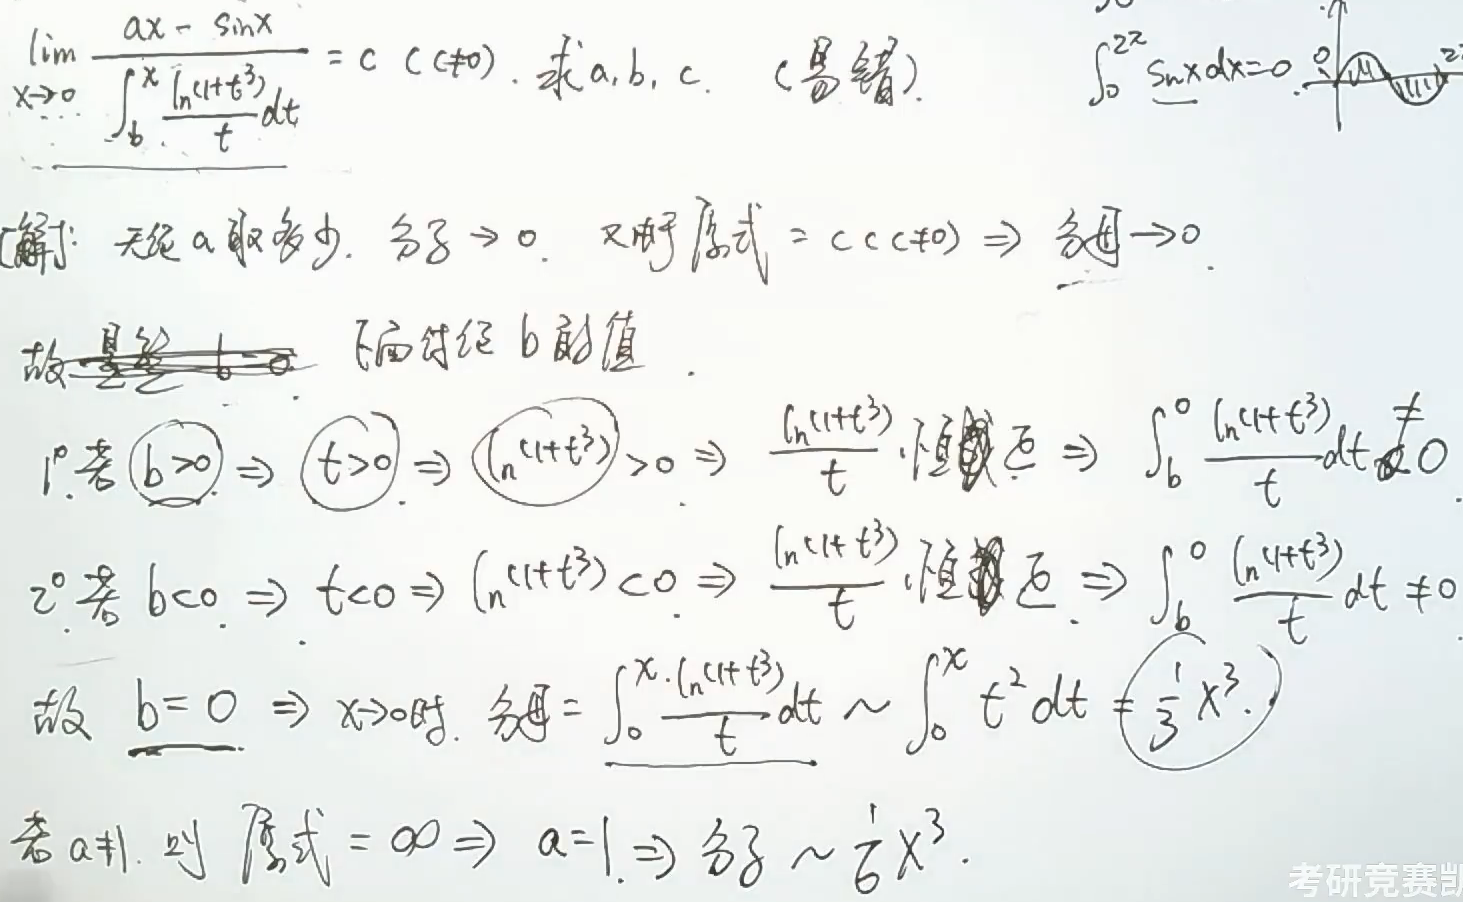 lim x→0 (ax - sinx) / ∫_b^x (ln(1+t³)/t) dt = c (c≠0). 求a,b,c. (易错).
∫_0^{2π} sinxdx=0.
0
[解]: 无论a取多少. 分子→0. 又由于原式 = c (c≠0) ⇒ 分母→0.
故 下面讨论b的值.
1°. 若 b>0 ⇒ t>0 ⇒ ln(1+t³)>0 ⇒ ln(1+t³)/t 恒正 ⇒ ∫_b^0 ln(1+t³)/t dt ≠ 0.
2°. 若 b<0 ⇒ t<0 ⇒ ln(1+t³)<0 ⇒ ln(1+t³)/t 恒正 ⇒ ∫_b^0 ln(1+t³)/t dt ≠ 0.
故 b=0 ⇒ x→0时. 分母 = ∫_0^x ln(1+t³)/t dt ~ ∫_0^x t² dt = 1/3 x³.
若 a≠1. 则 原式 = ∞ ⇒ a=1. ⇒ 分子 ~ 1/6 x³.
考研竞赛凯